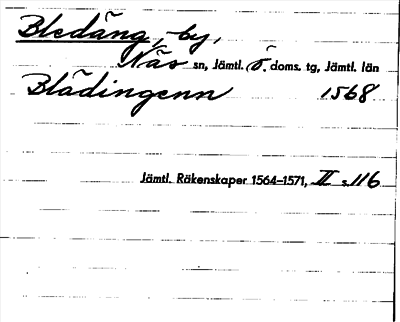 Bledäng, by,
Näs sn, Jämtl. ö. doms. tg, Jämtl. län
Blädingenn 1568
Jämtl. Räkenskaper 1564–1571, II s. 116